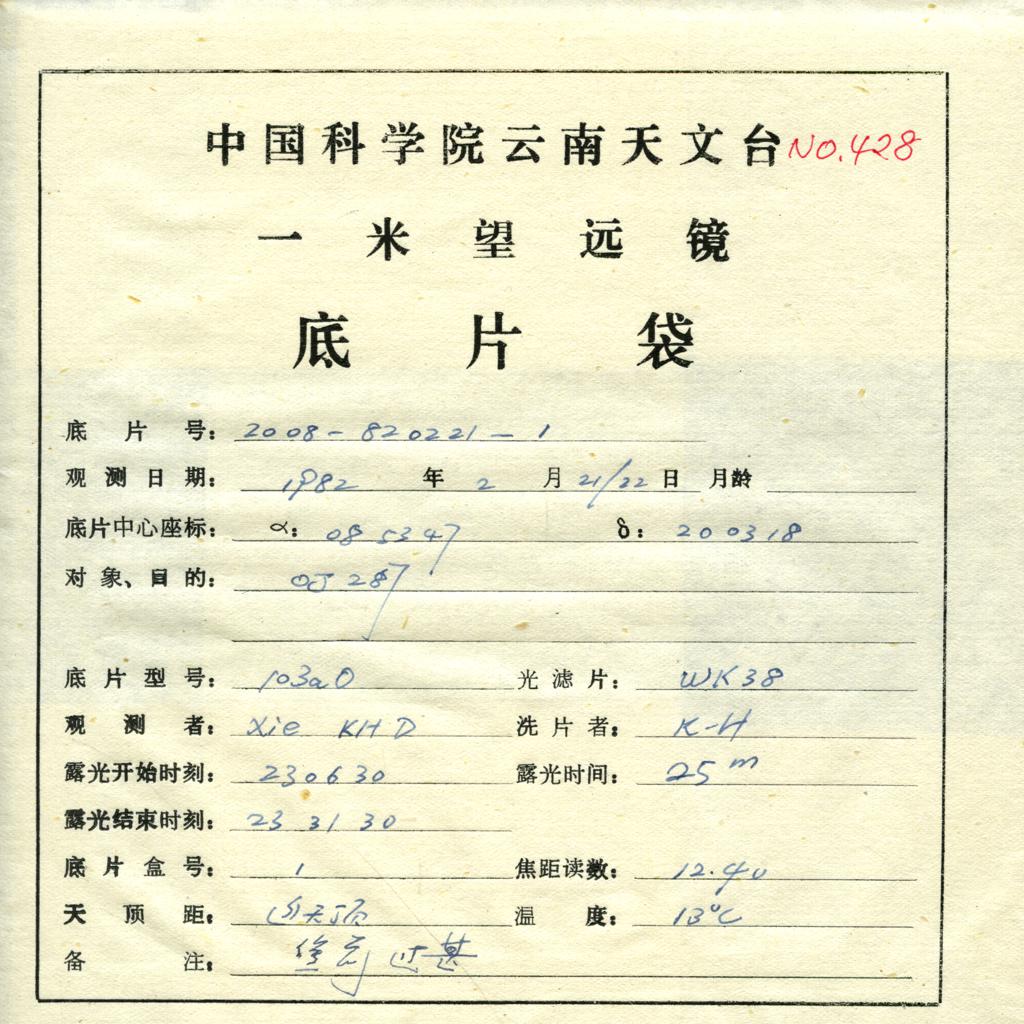 中国科学院云南天文台 NO.428
一米望远镜
底片袋
底片号: 2008-820221-1
观测日期: 1982 年 2 月 21/22 日 月龄
底片中心座标: α: 08 53 47 δ: 20 03 18
对象、目的: OJ 287
底片型号: 103aO 光滤片: WK38
观测者: Xie KH D 洗片者: K-H
露光开始时刻: 230630 露光时间: 25m
露光结束时刻: 23 31 30
底片盒号: 1 焦距读数: 12.40
天顶距: 近天顶 温度: 13°C
备注: 过甚